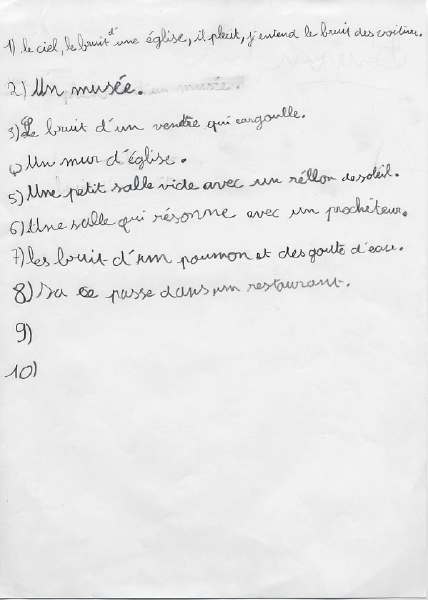 1) le ciel, le bruit d'une église, il pleut, j'entend le bruit des voitures.
2) Un musée.
3) Le bruit d'un ventre qui gargoulle.
4) Un mur d'église.
5) Une petit salle vide avec un réllon de soleil.
6) Une salle qui résonne avec un projecteur.
7) les bruit d'un poumon et des goute d'eau.
8) Sa ce passe dans un restaurant.
9)
10)